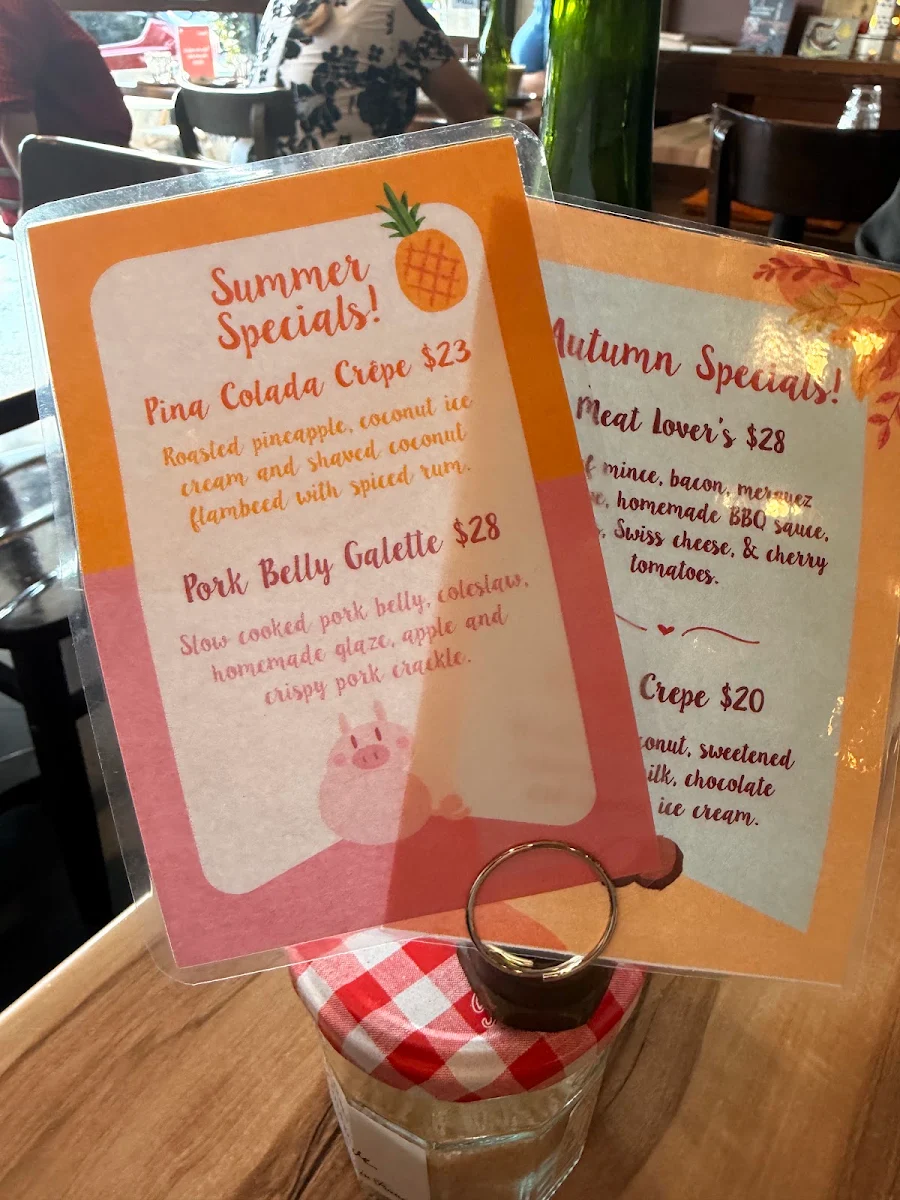 Summer
Specials!
Pina Colada Crêpe $23
Roasted pineapple, coconut ice
cream and shaved coconut
flambeed with spiced rum.
Pork Belly Galette $28
Slow cooked pork belly, coleslaw,
homemade glaze, apple and
crispy pork crackle.
Autumn Specials!
Meat Lover's $28
mince, bacon, merguez
homemade BBQ sauce,
Swiss cheese, & cherry
tomatoes.
Crepe $20
sweetened
chocolate
ice cream.